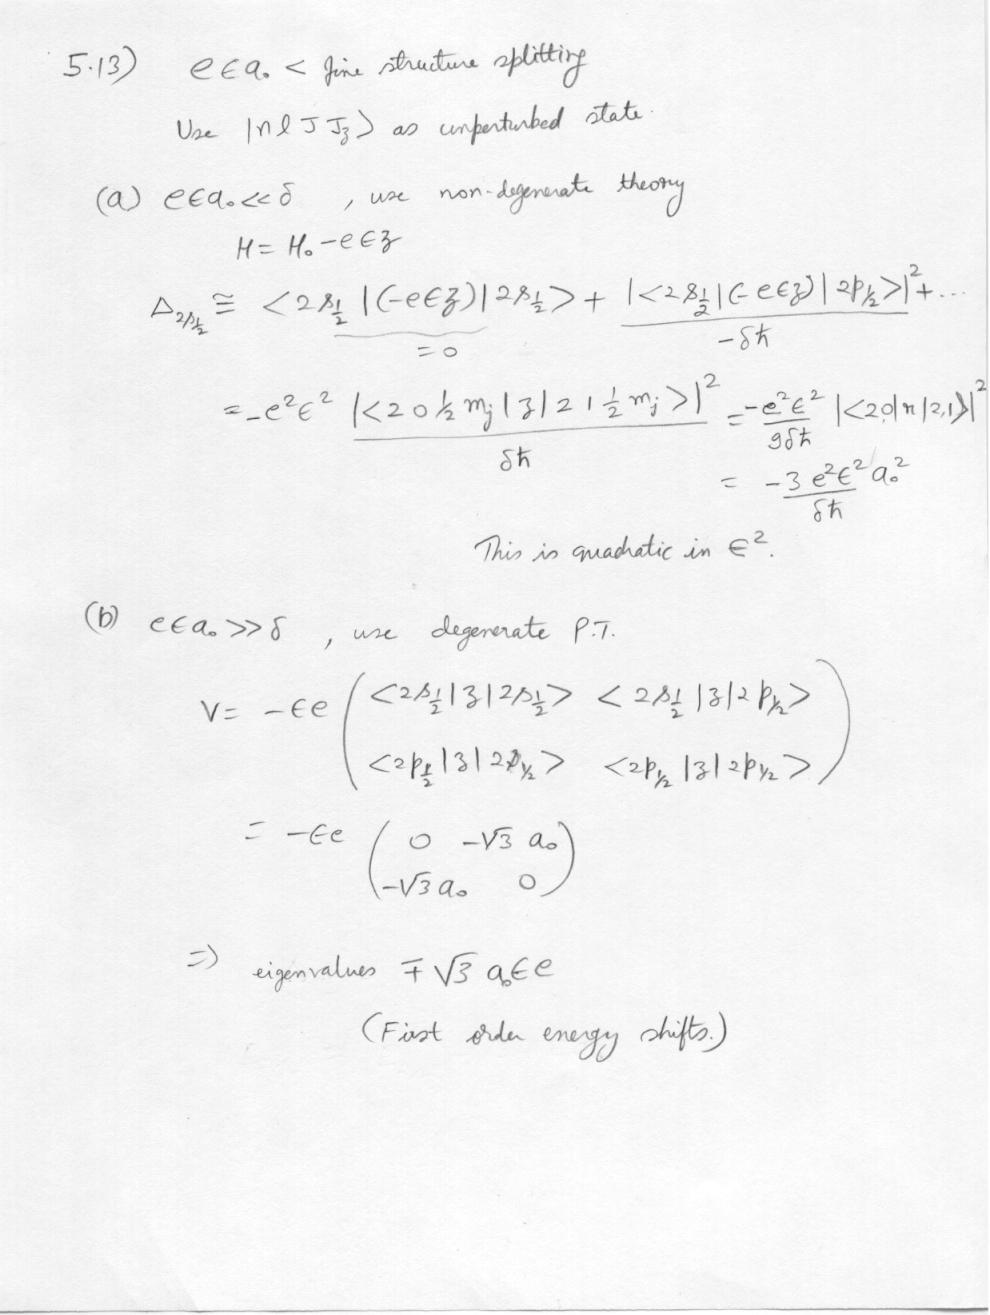 5.13) eϵa₀ < fine structure splitting
Use |n l J J_z⟩ as unperturbed state.
(a) eϵa₀ << δ , use non-degenerate theory
H = H₀ - eϵz
Δ_{2s½} ≅ <2s½|(-eϵz)|2s½> + |<2s½|(-eϵz)|2p½>|² + ...
= 0
-δħ
= -e²ϵ² |<2 0 ½ m_j|z|2 1 ½ m_j>|² = -e²ϵ² |<2,0|r|2,1>|²
δħ
9δħ
= -3 e²ϵ² a₀²
δħ
This is quadratic in ϵ².
(b) eϵa₀ >> δ , use degenerate P.T.
V = -ϵe ( <2s½|z|2s½> <2s½|z|2p½>
<2p½|z|2s½> <2p½|z|2p½> )
= -ϵe ( 0 -√3 a₀
-√3 a₀ 0 )
⇒ eigenvalues ∓ √3 a₀ϵe
(First order energy shifts.)